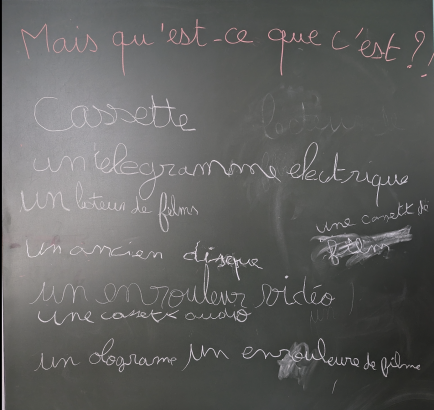 Mais qu'est-ce que c'est ?!
Cassette
un telegramme electrique
un leteur de films
une casett de
film
un ancien disque
un enrouleur vidéo
une casett audio
un olograme un enrouleure de film